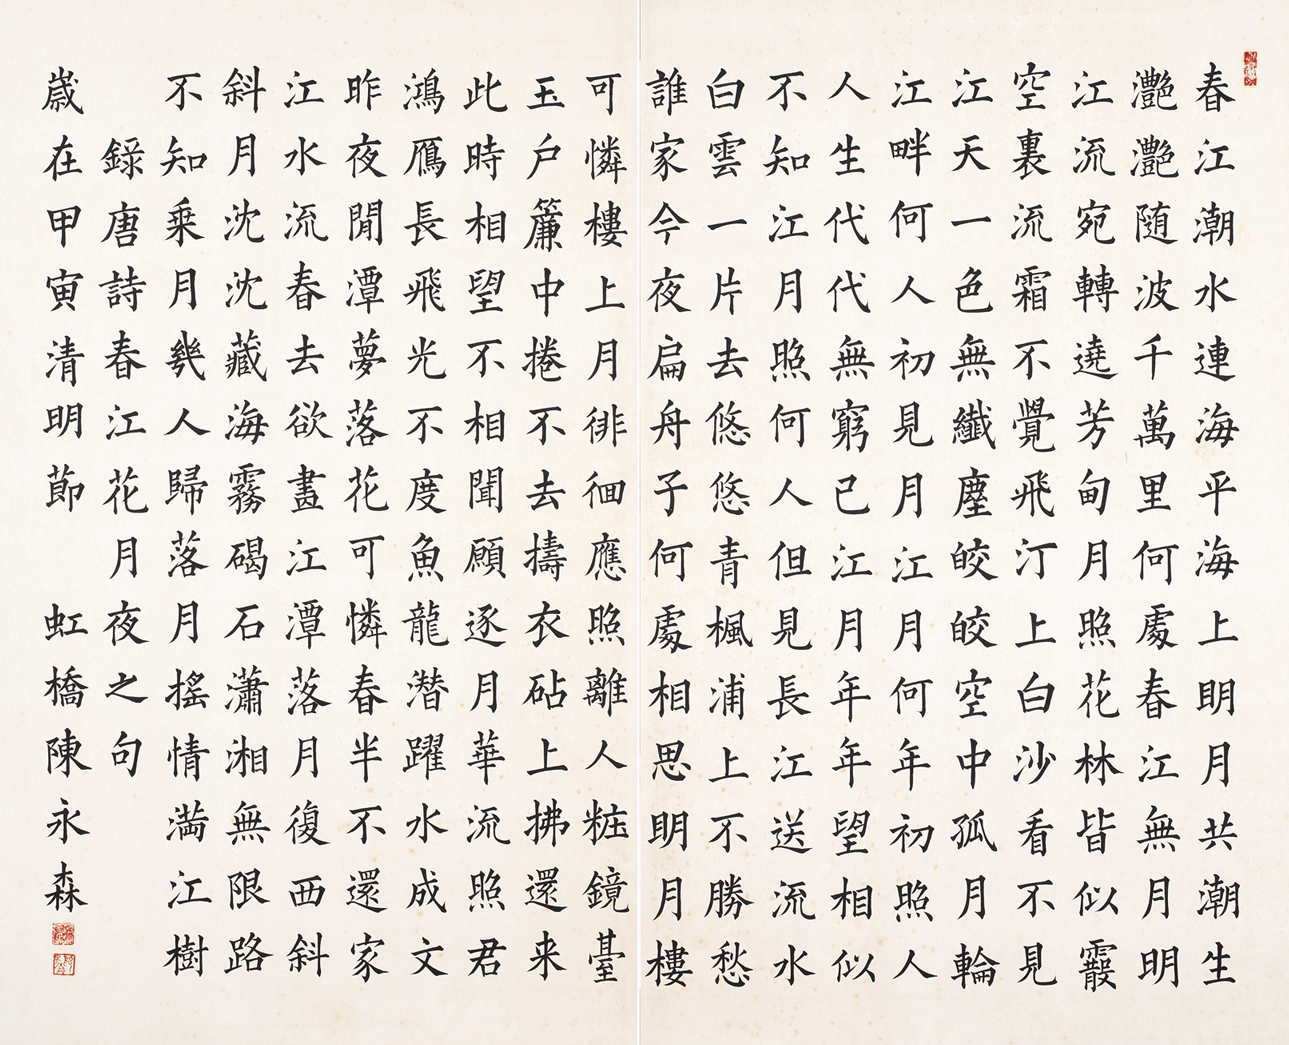 春江潮水連海平海上明月共潮生
灧灧随波千萬里何處春江無月明
江流宛轉遶芳甸月照花林皆似霰
空裏流霜不覺飛汀上白沙看不見
江天一色無纖塵皎皎空中孤月輪
江畔何人初見月江月何年初照人
人生代代無窮已江月年年望相似
不知江月照何人但見長江送流水
白雲一片去悠悠青楓浦上不勝愁
誰家今夜扁舟子何處相思明月樓
可憐樓上月徘徊應照離人粧鏡臺
玉户簾中捲不去擣衣砧上拂還来
此時相望不相聞願逐月華流照君
鴻鴈長飛光不度魚龍潜躍水成文
昨夜閒潭夢落花可憐春半不還家
江水流春去欲盡江潭落月復西斜
斜月沈沈藏海霧碣石瀟湘無限路
不知乗月幾人歸落月摇情満江樹
録唐詩春江花月夜之句
歲在甲寅清明節 虹橋陳永森